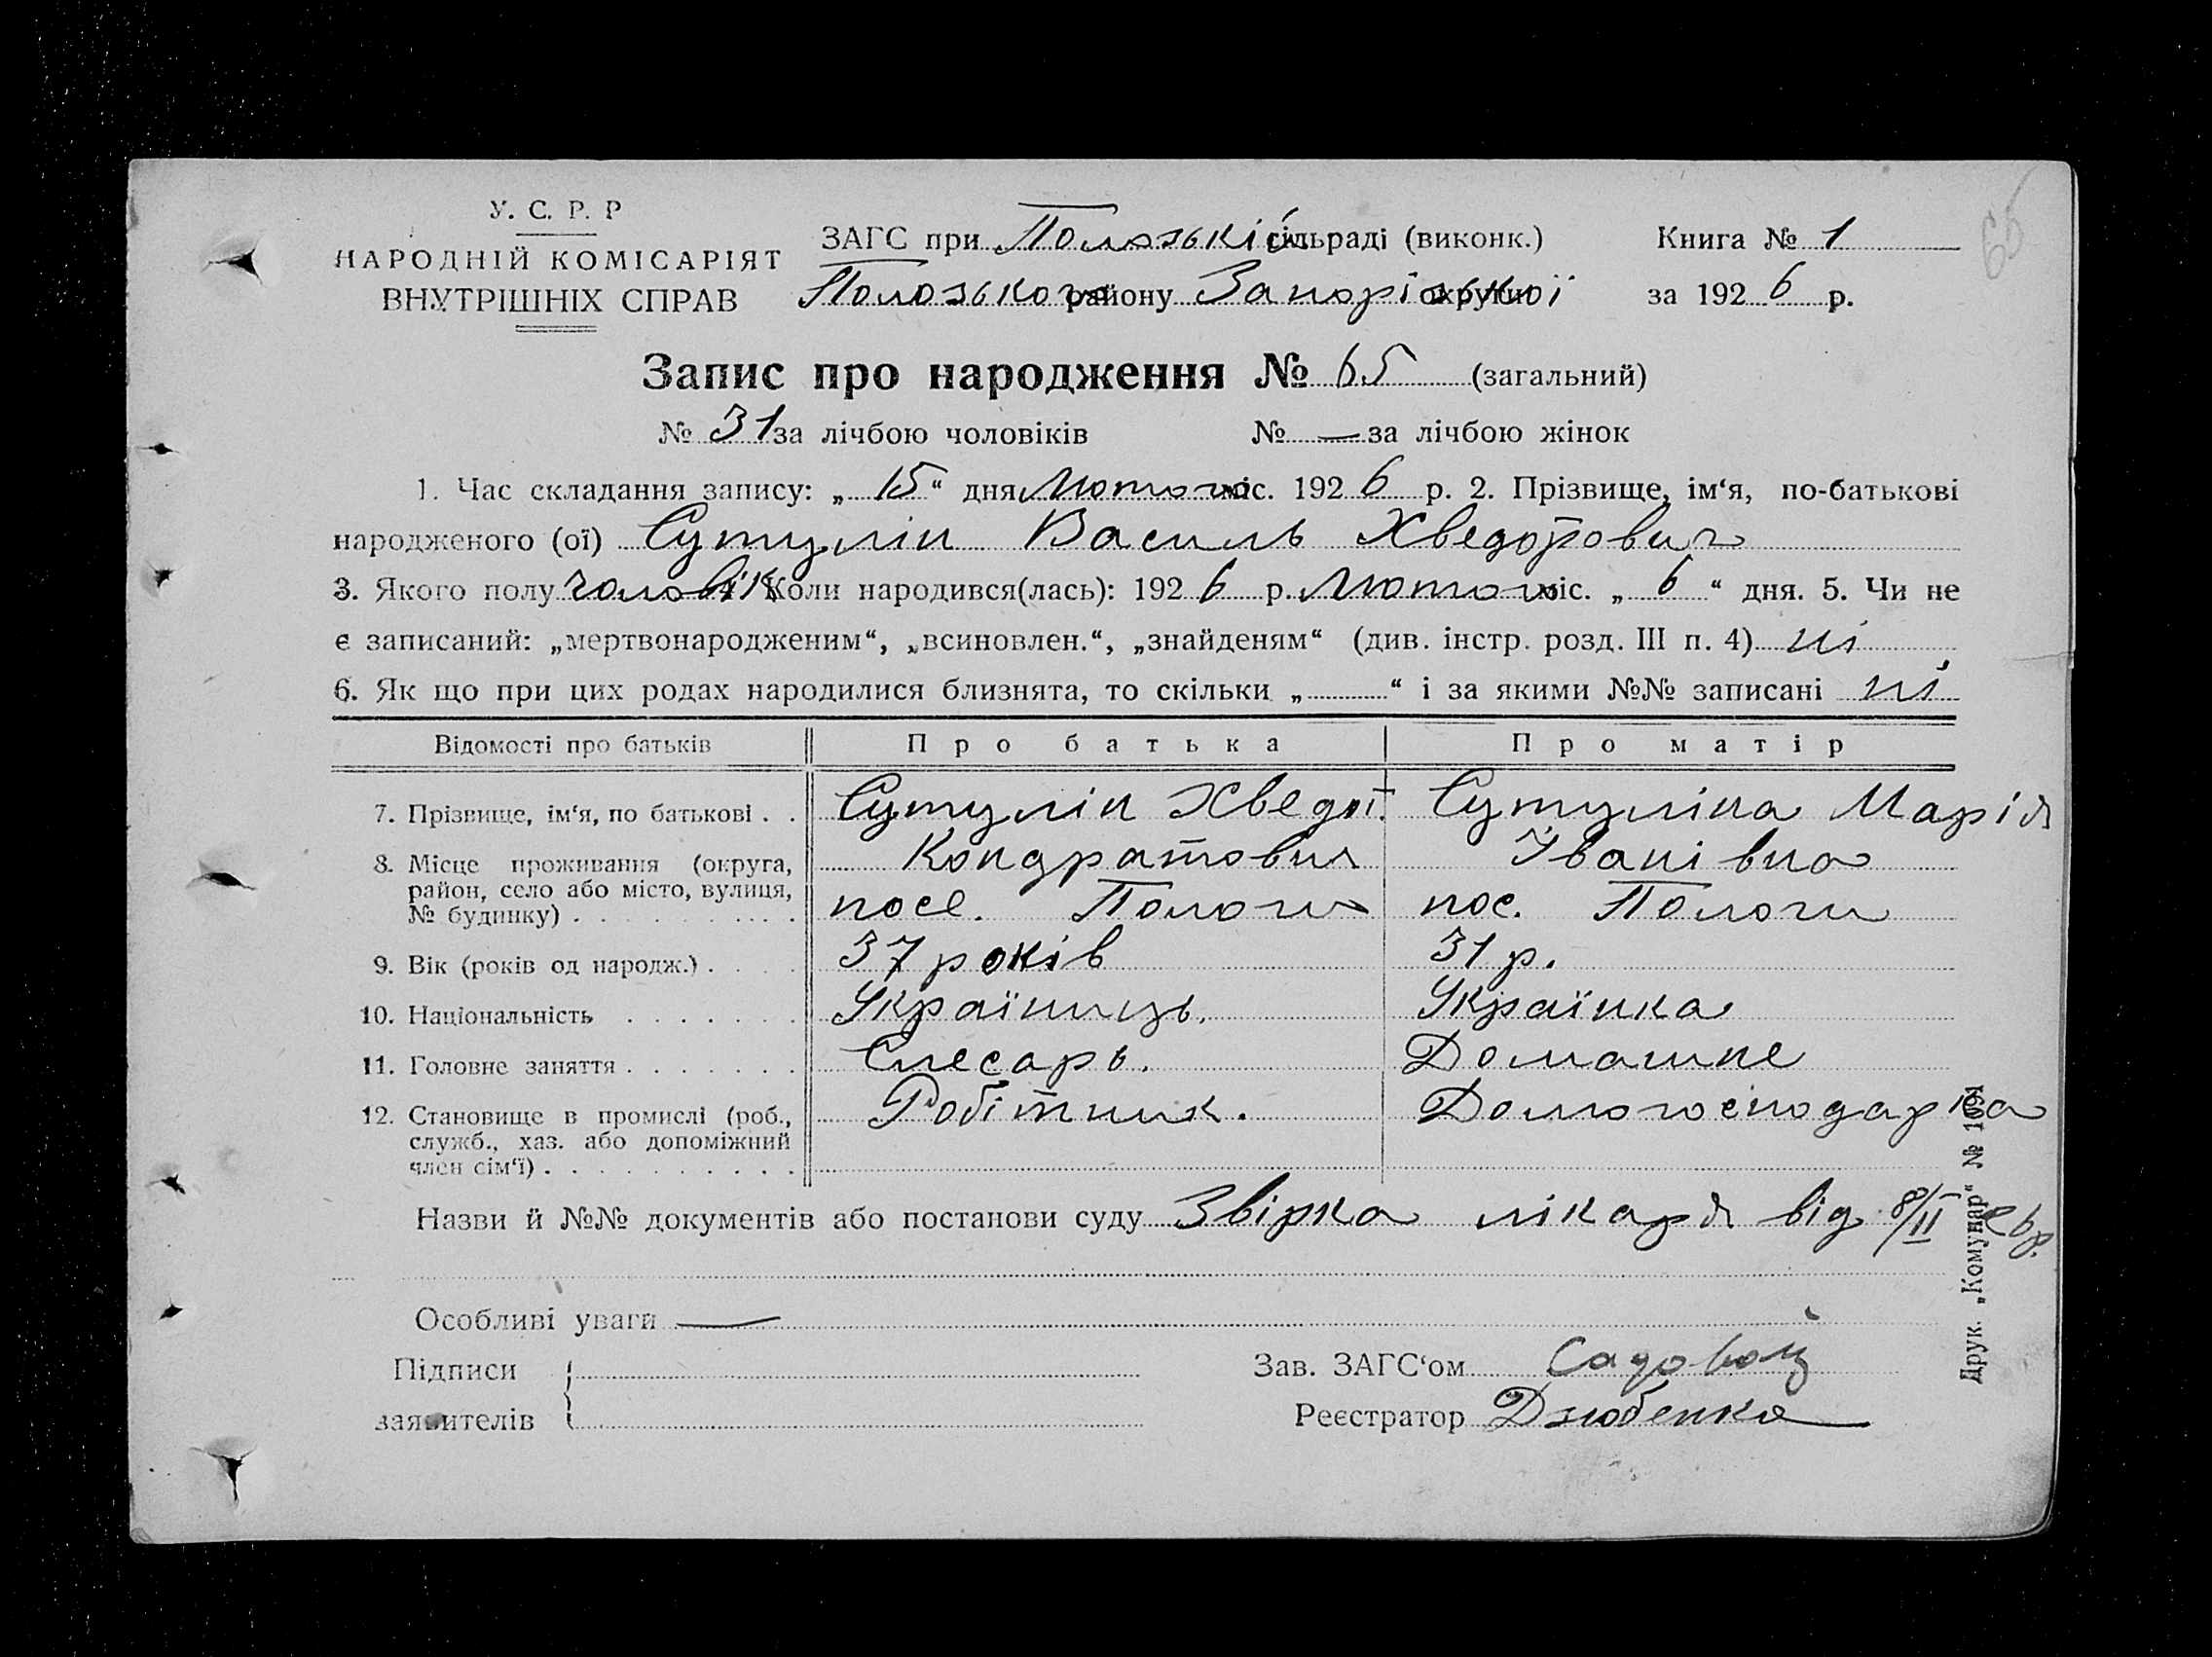 У. С. Р. Р
НАРОДНІЙ КОМІСАРІЯТ
ВНУТРІШНІХ СПРАВ
ЗАГС при Полозькій сільраді (виконк.)
Полозького району Запорізької округи
Книга № 1
за 1926 р.
65
Запис про народження № 65 (загальний)
№ 31 за лічбою чоловіків № — за лічбою жінок
1. Час складання запису: „ 15 “ дня Лютого міс. 1926 р. 2. Прізвище, ім‘я, по-батькові
народженого (ої) Сутулін Василь Хведорович
3. Якого полу чоловік Коли народився(лась): 1926 р. Лютого міс. „ 6 “ дня. 5. Чи не
є записаний: „мертвонародженим“, „всиновлен.“, „знайденям“ (див. інстр. розд. III п. 4) ні
6. Як що при цих родах народилися близнята, то скільки „ “ і за якими №№ записані ні
Відомості про батьків Про батька Про матір
7. Прізвище, ім‘я, по батькові . . Сутулін Хведот. Сутуліна Марія
Кондратович Іванівна
8. Місце проживання (округа,
район, село або місто, вулиця,
№ будинку) посе. Пологи пос. Пологи
9. Вік (років од народж.) 37 років 31 р.
10. Національність Україниць. Українка
11. Головне заняття Слесарь. Домашне
12. Становище в промислі (роб., Робітник. Домогосподарка
служб., хаз. або допоміжний
член сім‘ї)
Назви й №№ документів або постанови суду Звірка лікаря від 8/II 26р.
Особливі уваги —
Підписи
заявителів
Зав. ЗАГС‘ом Садовой
Реєстратор Дзюбенко
Друк. „Комунар“ № 1091